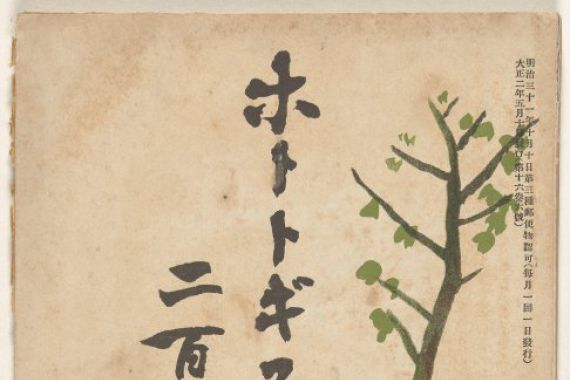 明治三十一年十月十日第三種郵便物認可(毎月一回一日發行)
大正二年五月十日發行(第十六卷六號)
ホトトギス
二百